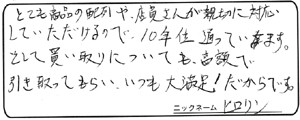 とても商品の配列や、店員さんが親切に対応
していただけるので、10年位通っています。
そして買い取りについても、高額で
引き取ってもらい、いつも大満足！だからです。
ニックネーム ヒロリン